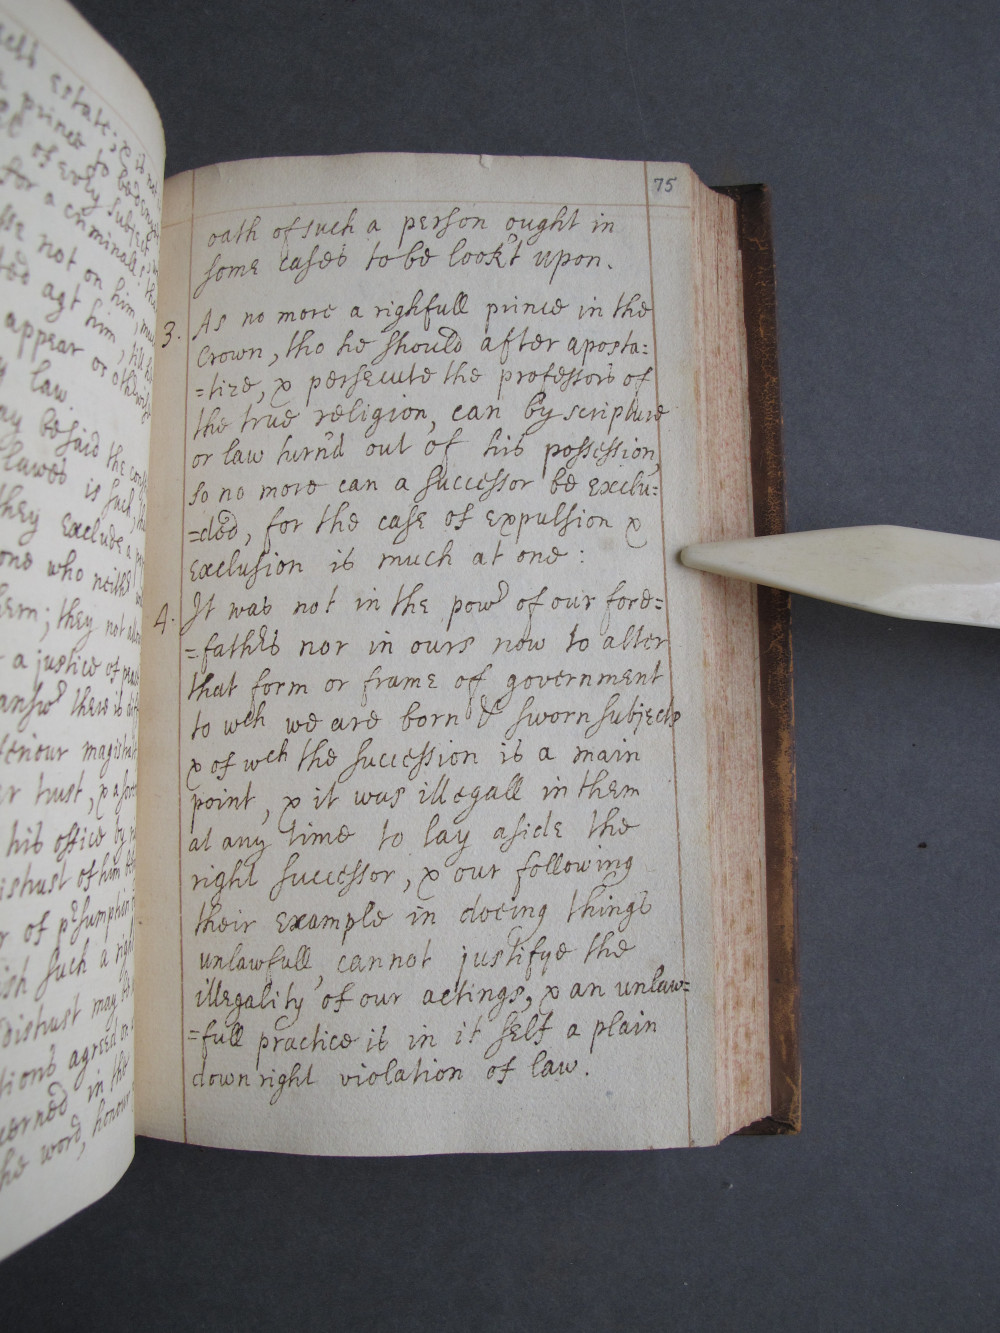 estate; & it not
prince to be deny'd
of evry subject
for a criminall? the
not on him, must
agt him, till his
appear or otherwise
law
be said the
lawes is such,
they exclude a
one who neithr
them; they not
a justice of peace
answr there is
magistrate
trust, &
his office by
distrust of him
or of prsumption
such a right
distrust may be
agreed on
in the
the word, honour
75
oath of such a person ought in
some cases to be look't upon.
3. As no more a rightfull prince in the
Crown, tho he should after aposta:
=tize, & persecute the professors of
the true religion, can by scripture
or law turn'd out of his possession,
so no more can a successor be exclu:
=ded, for the case of expulsion &
exclusion is much at one:
4. It was not in the powr of our fore=
=fathrs nor in ours now to alter
that form or frame of government
to wch we are born & sworn subjects
& of wch the succession is a main
point, & it was illegall in them
at any time to lay aside the
right successor, & our following
their example in doeing things
unlawfull, cannot justifye the
illegality of our actings, & an unlaw=
=full practice is in it self a plain
down right violation of law.